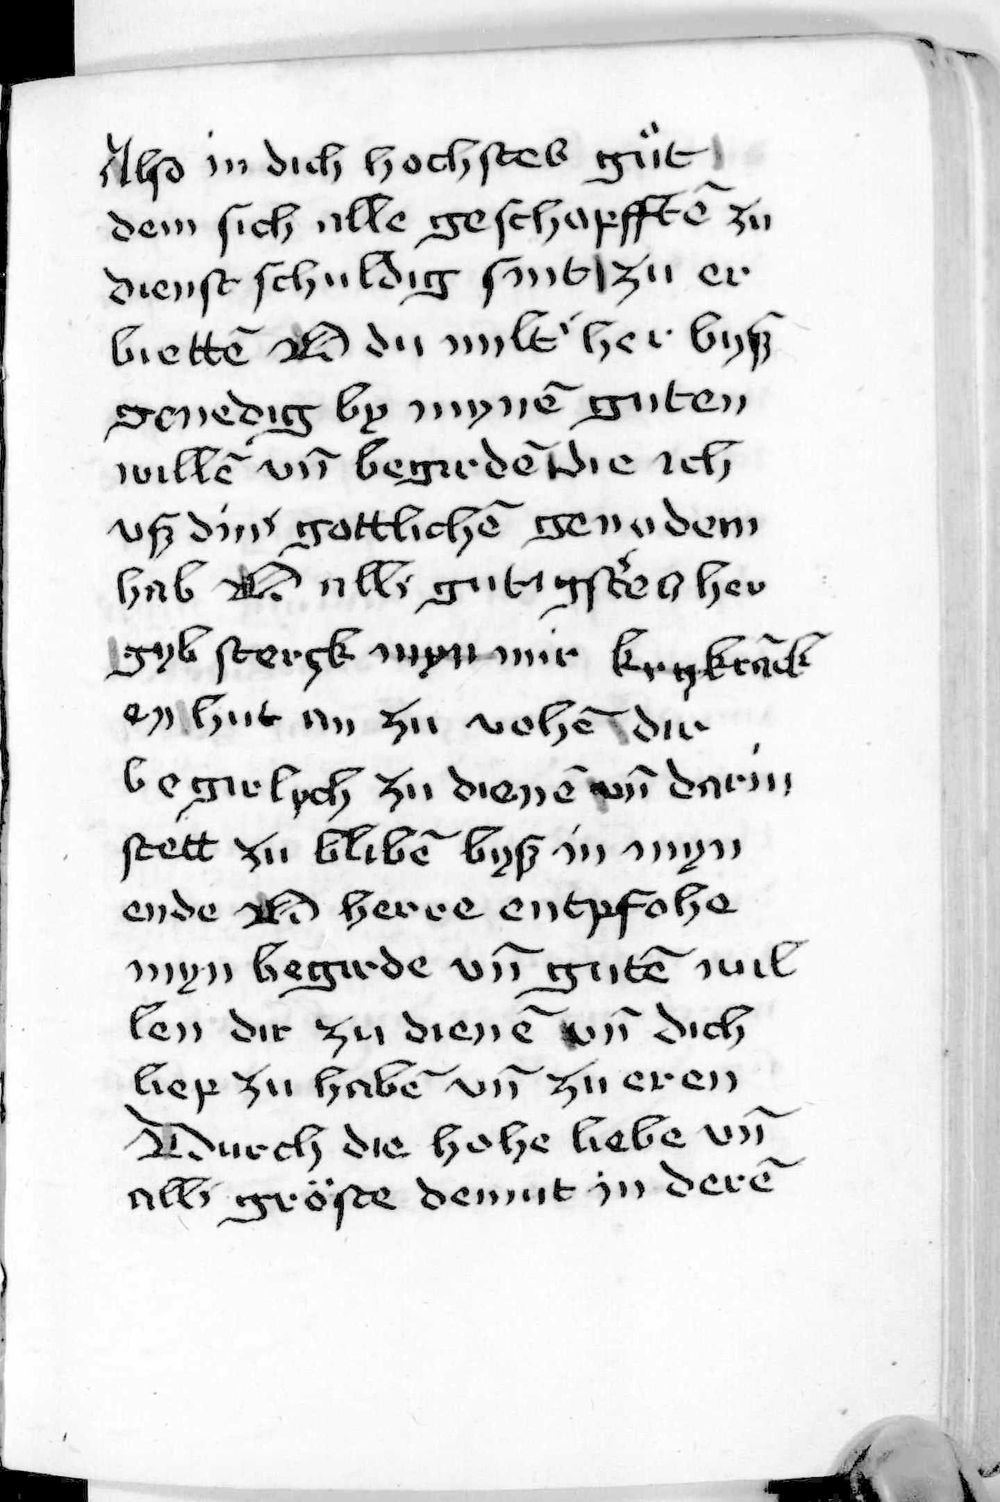 Also in dich hochstes guͤt
dem sich alle geschopfftē zu
dienst schuldig sint zu er
biettē O du milt' her byß
genedig by mynē guten
willē vn̄ begirdē die ich
vß din' gottlichē genodem
hab O all' gutigst'es her
gyb sterck myn mir krāck
en hut an zu vohē dir
begirlych zu dienē vn̄ darin
stett zu blibē byß in myn
ende O herre entpfohe
myn begirde vn̄ gutē wil
len dir zu dienē vn̄ dich
liep zu habē vn̄ zu eren
Durch die hohe liebe vn̄
all' gröste demut in derē